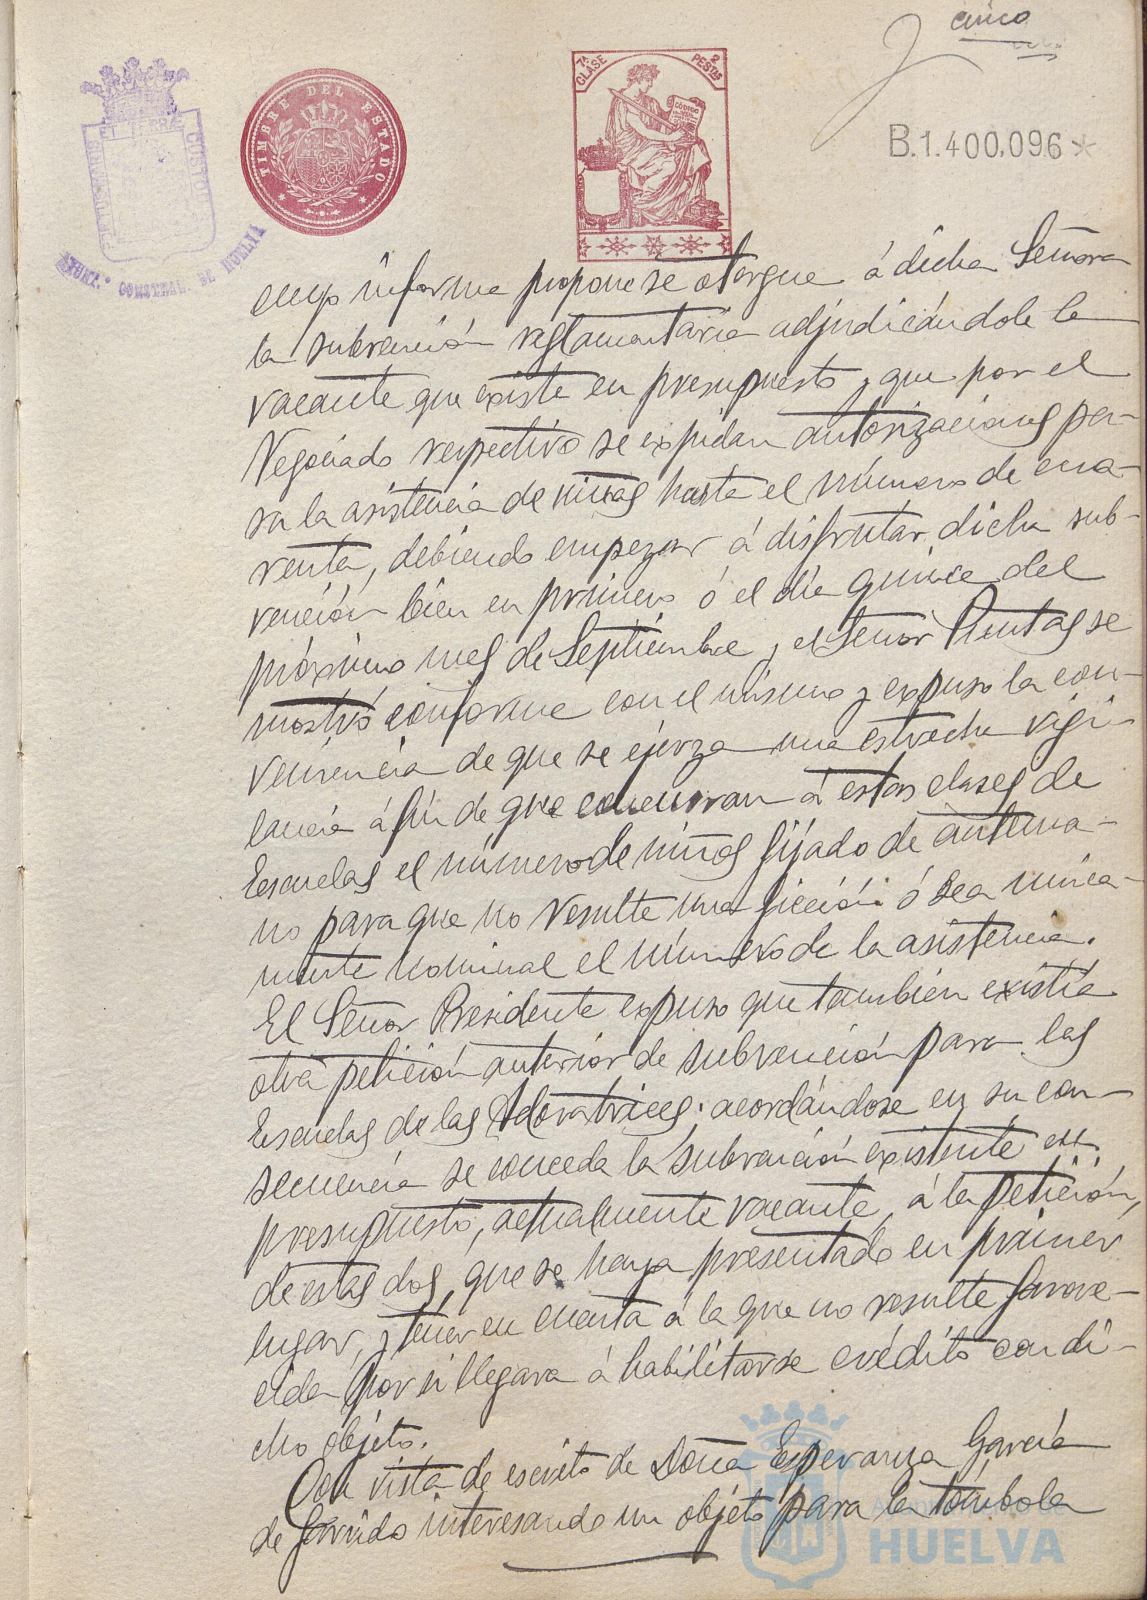 cinco
TIMBRE DEL ESTADO
7ª CLASE 2 PESTAS
CÓDIGO
B.1.400,096*
AYUNT.º CONSTNAL. DE HUELVA
cuyo informe propone se otorgue á dicha Señora
la subvención reglamentaria adjudicándole la
vacante que existe en presupuesto y que por el
Negociado respectivo se expidan autorizaciones pa-
ra la asistencia de niñas hasta el número de cua-
renta, debiendo empezar á disfrutar dicha sub-
vención bien en primero ó el día quince del
próximo mes de Septiembre y el Señor Pluntas se
mostró conforme con el mismo y expuso la con-
veniencia de que se ejerza una estrecha vigi-
lancia á fin de que concurran á estas clases de
Escuelas el número de niños fijado de antema-
no para que no resulte una ficción ó sea única-
mente nominal el número de la asistencia.
El Señor Presidente expuso que también existía
otra petición anterior de subvención para las
Escuelas de las Adoratrices; acordándose en su con-
secuencia se conceda la subvención existente en
presupuesto, actualmente vacante, á la petición,
de estas dos, que se haya presentado en primer
lugar, y tener en cuenta á la que no resulte favore-
cida por si llegara á habilitarse crédito con di-
cho objeto.
Con vista de escrito de Doña Esperanza García
de Garrido interesando un objeto para la tómbola
Ayuntamiento de
HUELVA